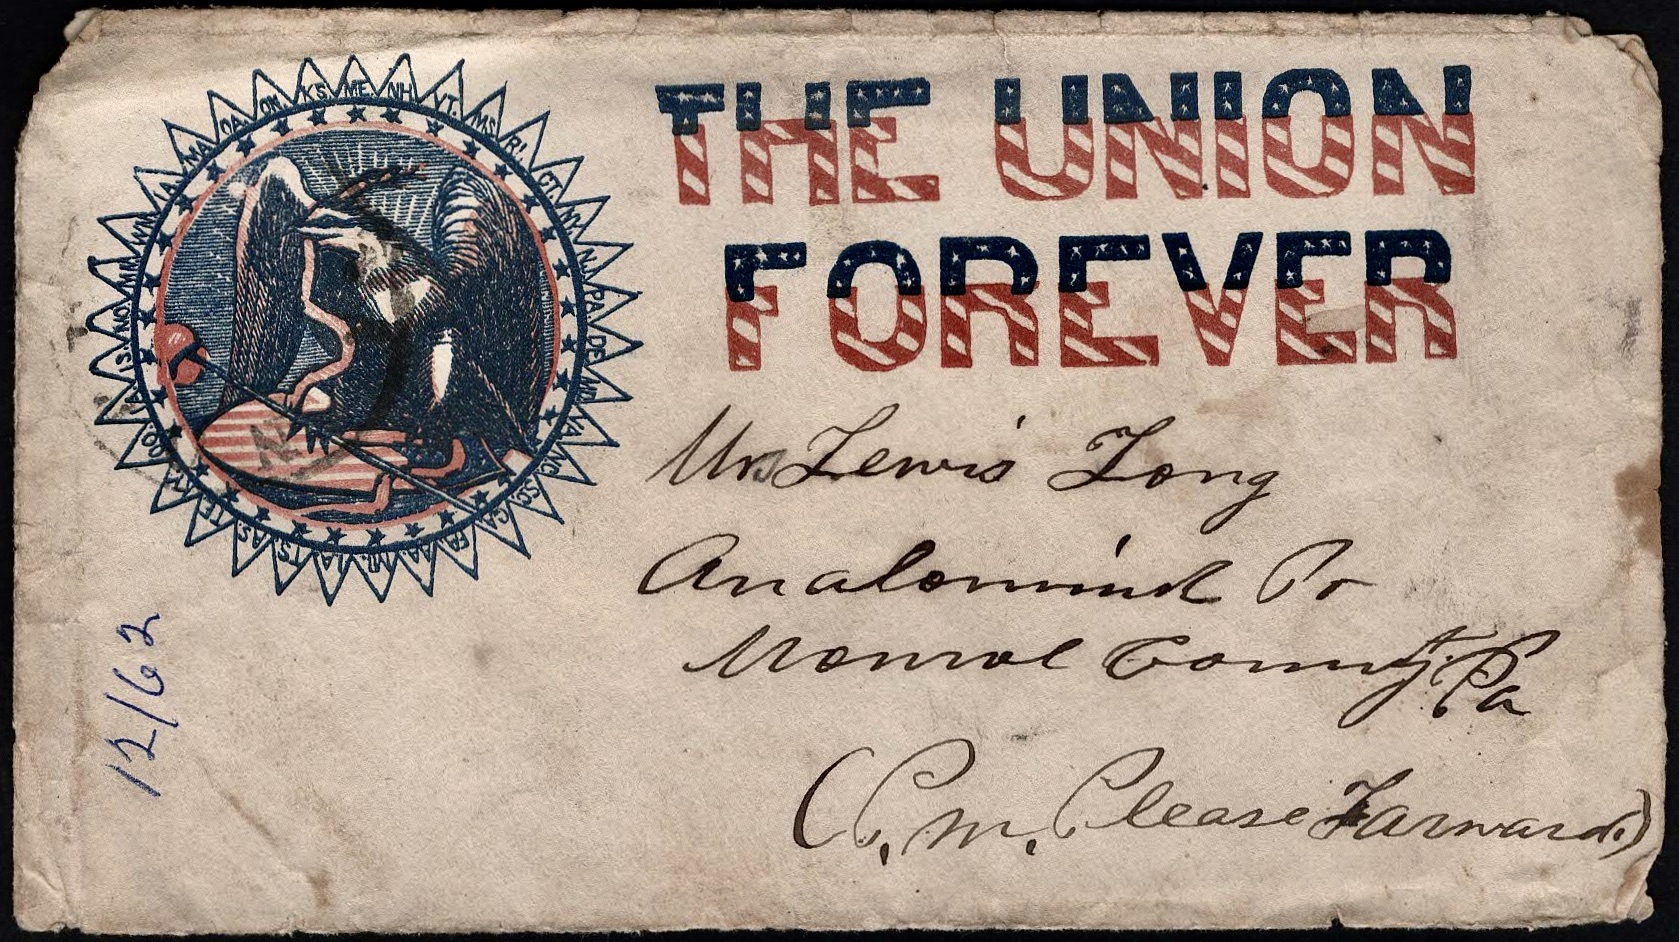 THE UNION
FOREVER
KS. ME. NH. VT. MS. RI. CT. N.Y. N.J. PA. DE. MD. VA. NC. SC. GA. FA. AA. MI. LA. TS. AS. TE. KY. O. IS. MO. MN. WN. IA. MA. CA. ON.
Mr Lewis Long
Analomink Po
Monroe County Pa
(P. M. Please Farward.)
12/62